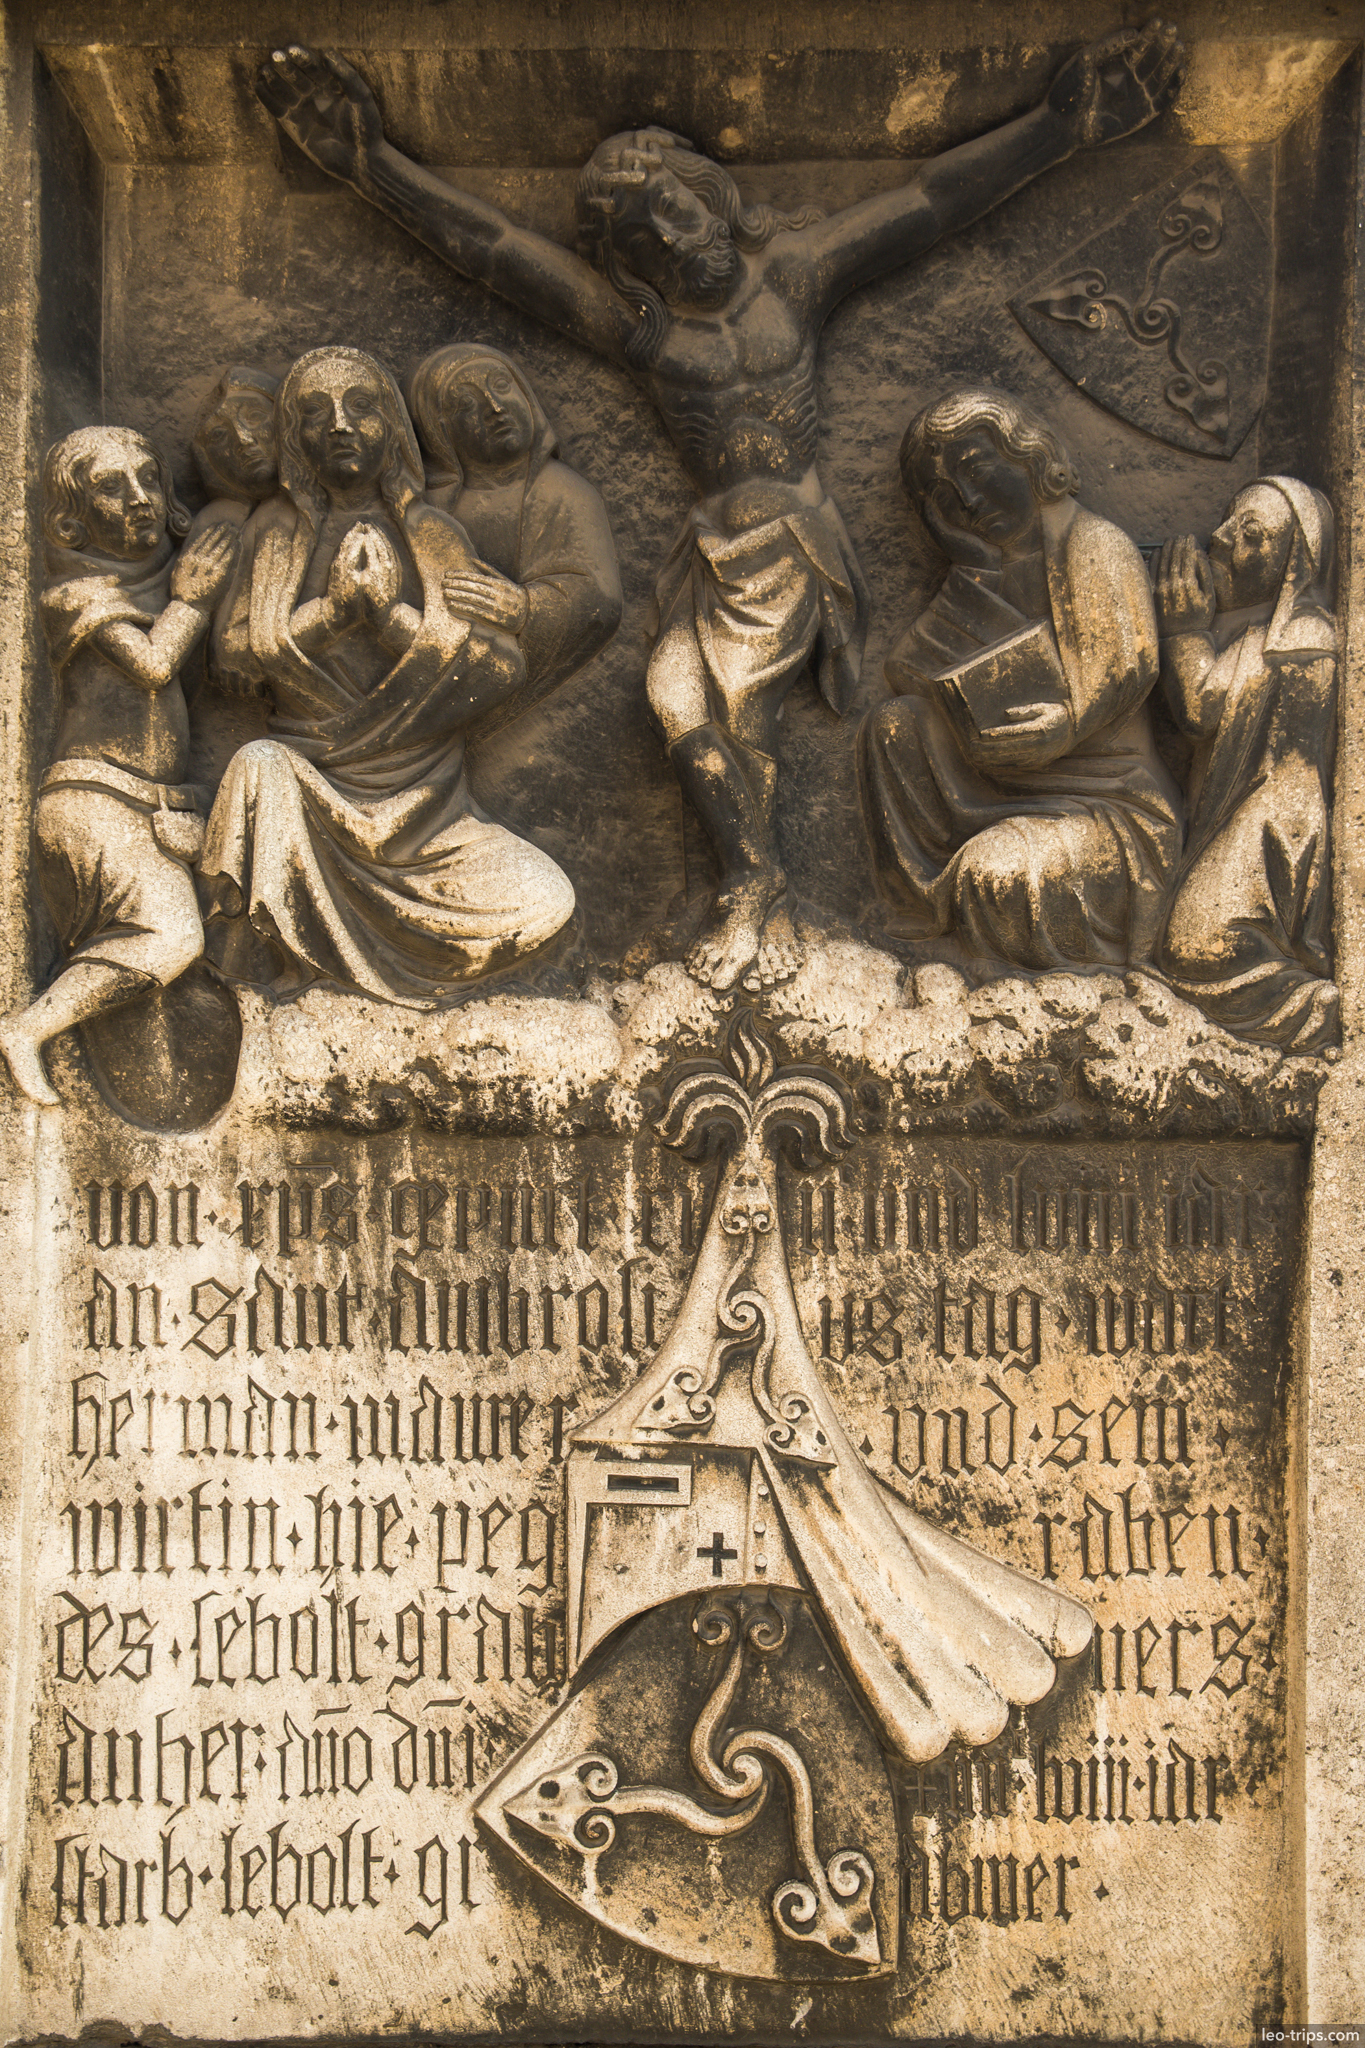 von · xp̄s · gepurt
an · sant · ambrosius · tag · wart
herman · maurer · vnd · sein ·
wirtin · hie · pegraben ·
des · sebolt · grabners ·
anher · an̄o dn̄i · lviii · iar ·
starb · sebolt · grabmer ·
leo-trips.com